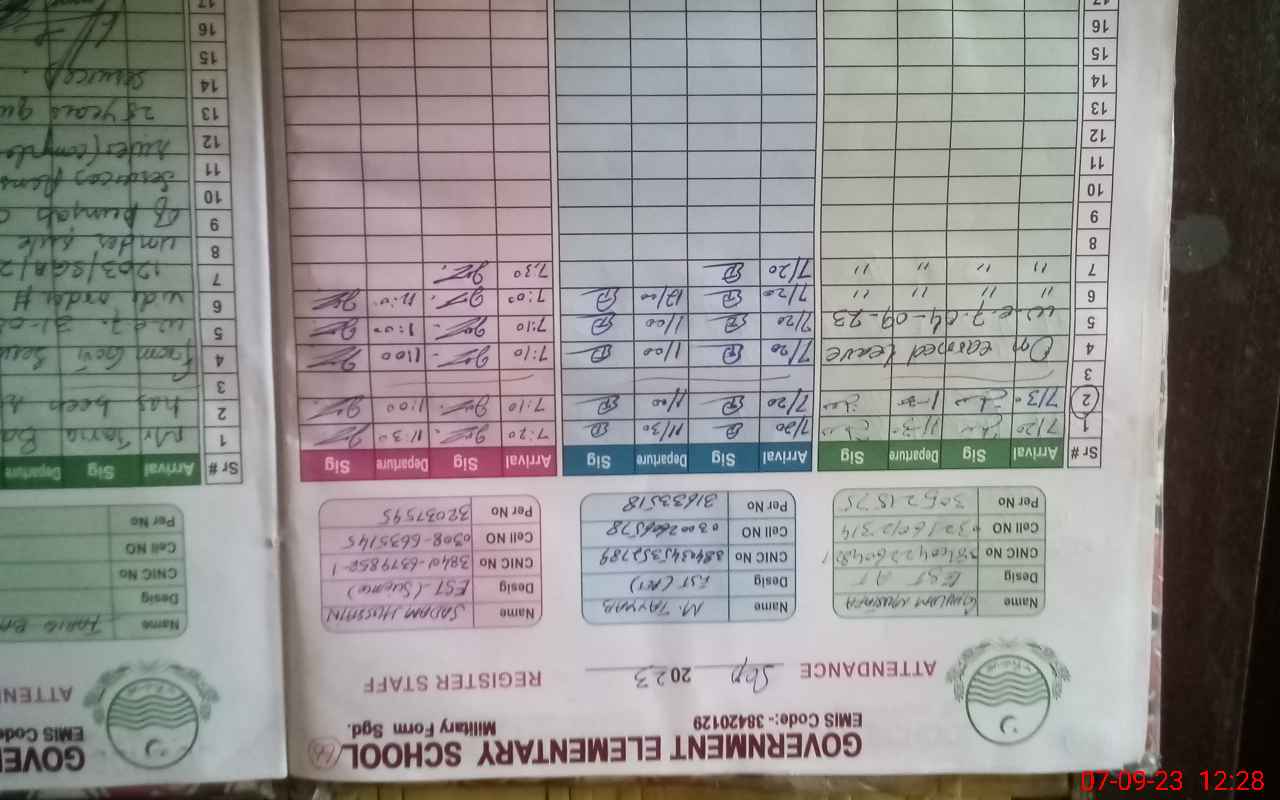 GOVERNMENT ELEMENTARY SCHOOL
EMIS Code:- 38420129 Military Form Sgd.
ATTENDANCE Sep 2023 REGISTER STAFF
Name GHULAM MUSTAFA
Desig EST AT
CNIC No
Cell NO
Per No
Name M. TAYYAB
Desig
CNIC No
Cell NO
Per No 31633518
Name SADAM HUSSAIN
Desig EST-(Science)
CNIC No
Cell NO 0308-6635145
Per No 32037595
Sr # Arrival Sig Departure Sig Arrival Sig Departure Sig Arrival Sig Departure Sig
1 7/20 11/30 7/20 11/30 7:20 11:30
2 7/30 1-30 7/20 1/00 7:10 1:00
3
4 On earned Leave 7/20 1/00 7:10 1:00
5 w.e.f. 04-09-23 7/20 1/00 7:10 1:00
6 " " " " 7/20 12/00 7:00 12:0
7 " " " " 7/20 7:30
8
9
10
11
12
13
14
15
16
17
GOVE
EMIS Code
ATTEN
Name TARIQ BA
Desig
CNIC No
Cell NO
Per No
Sr # Arrival Sig Departure
1 Mr Tariq Ba
2 has been
3
4 from Govt
5 w.e.f. 31-0
6 vide order #
7 1203/SGA/2
8 under rule
9 of Punjab
10
11 Services
12 rules (comple
13 25 years qu
14 service)
15
16
17
07-09-23 12:28